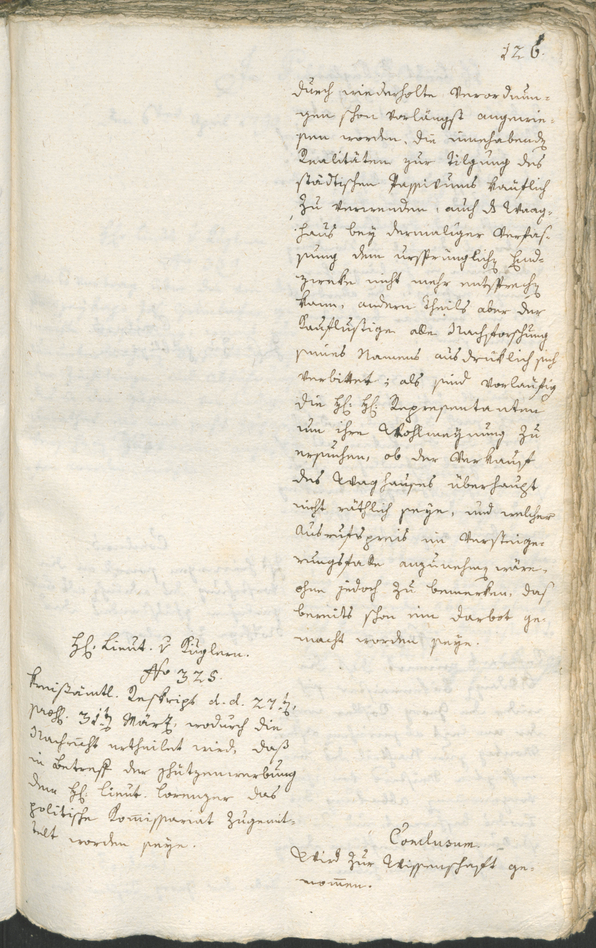 126.
durch wiederholte Verordnun-
gen schon vorlängst angewie-
sen worden, die innehabende
Realitäten zur Tilgung des
städtischen Passivums käuflich
zu verwenden, auch ds Waag-
haus bey dermaliger Verfas-
sung dem ursprünglichen End-
zwecke nicht mehr entsprechen
kann, andern Theils aber der
Kauflustige alle Nachforschung
seines Namens ausdrüklich sich
verbittet; als sind vorläufig
die HH. HH. Representanten
um ihre Wohlmeynung zu
ersuchen, ob der Verkauf
des Waghauses überhaupt
nicht räthlich seye, und welcher
Ausrufspreis im Versteige-
rungsfalle anzunehmen wäre,
ohne jedoch zu bemerken, daß
bereits schon ein Darbot ge-
macht worden seye.
H. Lieut. v Kuglern.
Nro 325.
Kreisämtl. Reskript d. d. 27ten,
praes. 31ten März, wodurch die
Nachricht ertheilet wird, daß
in Betreff der Schützenwerbung
dem H. Lieut. Lorenzer das
politische Komissariat zugemit-
telt worden seye.
Conclusum.
Wird zur Wissenschaft ge-
nommen.